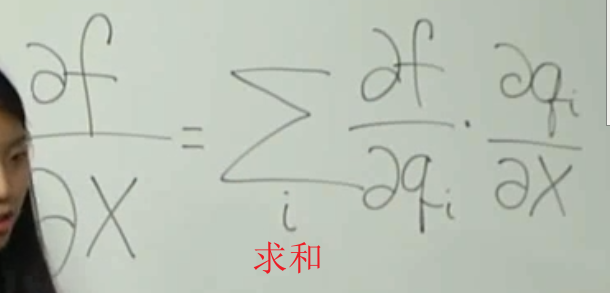 ∂f/∂x = Σ_i ∂f/∂q_i · ∂q_i/∂x
求和